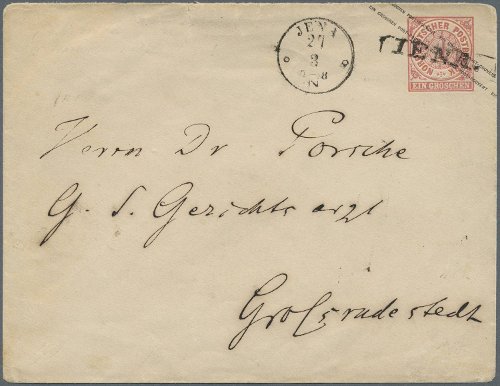 JENA
27
3
N
NORDDEUTSCHER POSTBEZIRK
EIN GROSCHEN
JENA
Herrn Dr Porsche
G. S. Gerichts arzt
Großrudestedt